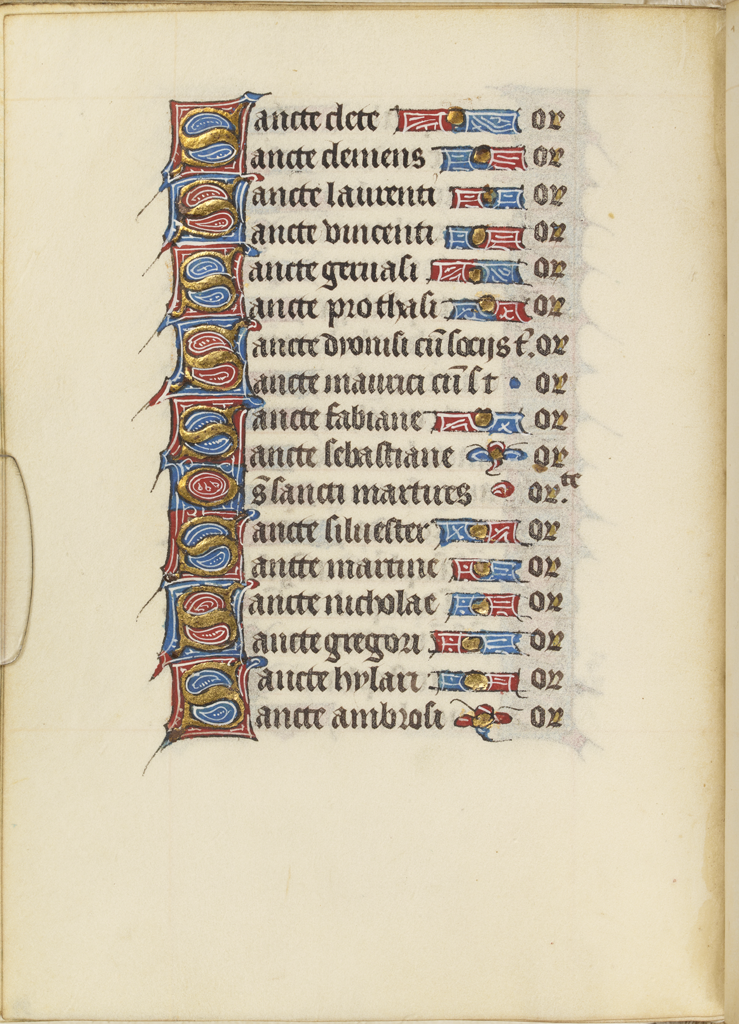 Sancte clete or
Sancte clemens or
Sancte laurenti or
Sancte vincenti or
Sancte geruasi or
Sancte prothasi or
Sancte dyonisi cũ socijs t. or
Sancte maurici cũ s t or
Sancte fabiane or
Sancte sebastiane or
Os̃ sancti martires or.te
Sancte siluester or
Sancte martine or
Sancte nicholae or
Sancte gregori or
Sancte hylari or
Sancte ambrosi or